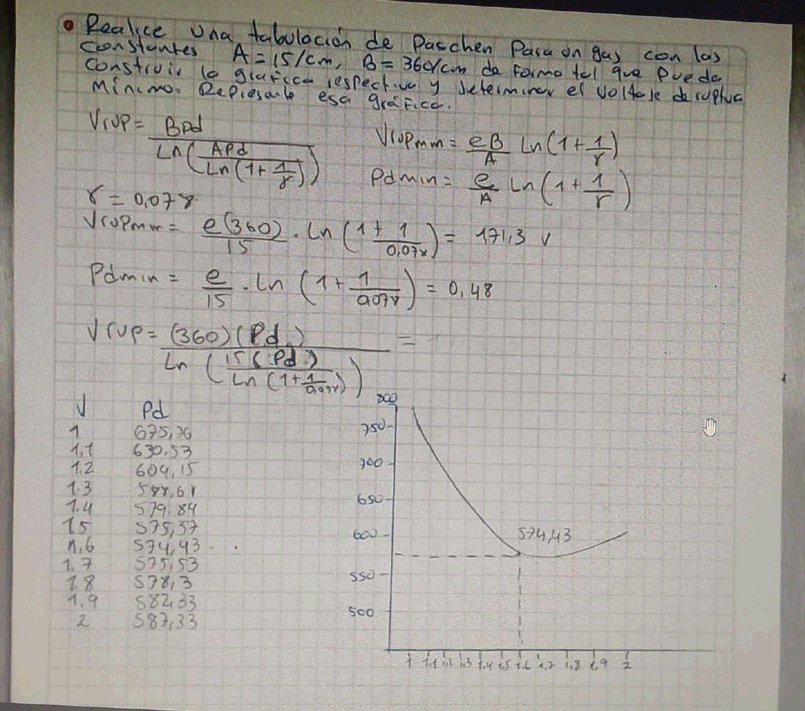 • Realice una tabulación de Paschen Para un gas con las
constantes A = 15/cm, B = 360/cm de forma tal que pueda
construir la grafica respectiva y determinar el voltaje de ruptua
Minimo. Represente esa gráfica.
Vrup = BPd / Ln(APd / Ln(1+1/γ))
Vrupmm = eB/A Ln(1+1/γ)
Pdmin = e/A Ln(1+1/γ)
γ = 0,078
Vrupmm = e(360)/15 · Ln(1+1/0,078) = 171,3 V
Pdmin = e/15 · Ln(1+1/0,078) = 0,48
Vrup = (360)(Pd) / Ln(15(Pd) / Ln(1+1/0,078)) =
V Pd
1 675,76
1,1 630.53
1.2 604,15
1.3 588,61
1.4 579.84
15 575,57
1,6 574,43
1,7 575,53
1.8 578,3
1.9 582,33
2 587,33
800
750
700
650
600
550
500
574,43
1 1,1 1,2 1,3 1,4 1,5 1,6 1,7 1,8 1,9 2